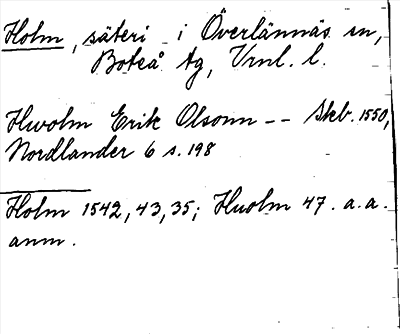 Holm, säteri i Överlännäs sn,
Boteå tg, Vnl. l.
Hwolm Erik Olsonn -- Skb. 1550,
Nordlander 6 s. 198
Holm 1542, 43, 35; Huolm 47. a.a.
anm.